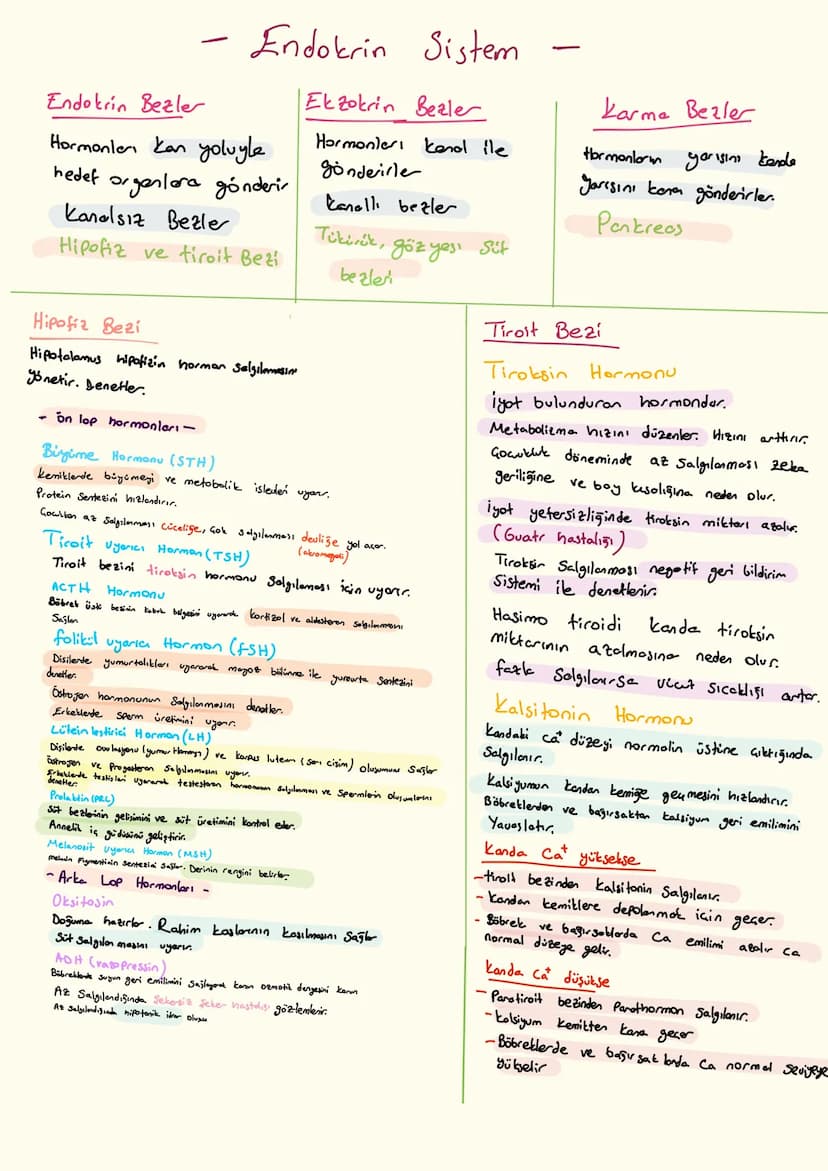 - Endokrin Sistem -
Endokrin Bezler
Hormonları kan yoluyla
hedef organlara gönderir
Kanalsız Bezler
Hipofiz ve tiroit Bezi
Ekzokrin Bezler
Hormonları kanal ile
gönderirler
kanallı bezler
Tükürük, göz yaşı süt
bezleri
Karma Bezler
Hormonların yarısını kanala
yarısını kana gönderirler.
Pankreas
Hipofiz Bezi
Hipotalamus hipofizin hormon salgılamasını
yönetir. Denetler.
- ön lop hormonları -
Büyüme Hormonu (STH)
kemiklerde büyümeyi ve metabolik işleleri uyarır.
Protein sentezini hızlandırır.
Çocukken az salgılanması cüceliğe, çok salgılanması devliğe yol açar.
(akromegali)
Tiroit uyarıcı Hormon (TSH)
Tiroit bezini tiroksin hormonu salgılaması için uyarır.
ACTH Hormonu
Böbrek üstü bezinin kabuk bölgesini uyararak kortizol ve aldosteron salgılanmasını
Sağlar
folikül uyarıcı Hormon (fSH)
Dişilerde yumurtalıkları uyararak mayoz bölünme ile yumurta sentezini
denetler.
Östrojen hormonunun salgılanmasını denetler.
Erkeklerde sperm üretimini uyarır.
Lüteinleştirici Hormon (LH)
Dişilerde ovulasyonu (yumurtlamayı) ve korpus luteum (sarı cisim) oluşumunu sağlar
östrojen ve Progesteron salgılanmasını uyarır.
Erkeklerde testisleri uyararak testosteron hormonunun salgılanması ve spermlerin oluşumlarını
denetler.
Prolaktin (PRL)
Süt bezlerinin gelişimini ve süt üretimini kontrol eder.
Annelik iç güdüsünü geliştirir.
Melanosit uyarıcı Hormon (MSH)
melanin pigmentinin sentezini sağlar. Derinin rengini belirler.
- Arka Lop Hormonları -
Oksitosin
Doğuma hazırlar. Rahim kaslarının kasılmasını sağlar
Süt salgılanmasını uyarır.
ADH (vazopressin)
Böbreklerde suyun geri emilimini sağlayarak kanın ozmotik dengesini korur
Az Salgılandığında şekersiz şeker hastalığı gözlemlenir.
Az salgılandığında hipotonik idrar oluşur
Tiroit Bezi
Tiroksin Hormonu
İyot bulunduran hormondur.
Metabolizma hızını düzenler. Hızını arttırır.
Çocukluk döneminde az salgılanması zeka
geriliğine ve boy kısalığına neden olur.
İyot yetersizliğinde tiroksin miktarı azalır.
(Guatr hastalığı)
Tiroksin Salgılanması negatif geri bildirim
Sistemi ile denetlenir.
Haşimo tiroidi kanda tiroksin
miktarının azalmasına neden olur.
fazla Salgılanırsa vücut sıcaklığı artar.
Kalsitonin Hormonu
Kandaki ca⁺ düzeyi normalin üstüne çıktığında
salgılanır.
Kalsiyumun kandan kemiğe geçmesini hızlandırır.
Böbreklerden ve bağırsaktan kalsiyum geri emilimini
Yavaşlatır.
Kanda Ca⁺ yüksekse
- tiroit bezinden kalsitonin salgılanır.
- kandan kemiklere depolanmak için geçer.
- Böbrek ve bağırsaklarda Ca emilimi azalır ca
normal düzeye gelir.
Kanda ca⁺ düşükse
- Paratiroit bezinden Parathormon salgılanır.
- kalsiyum kemikten kana geçer
- Böbreklerde ve bağırsaklarda Ca normal seviyeye
yükselir